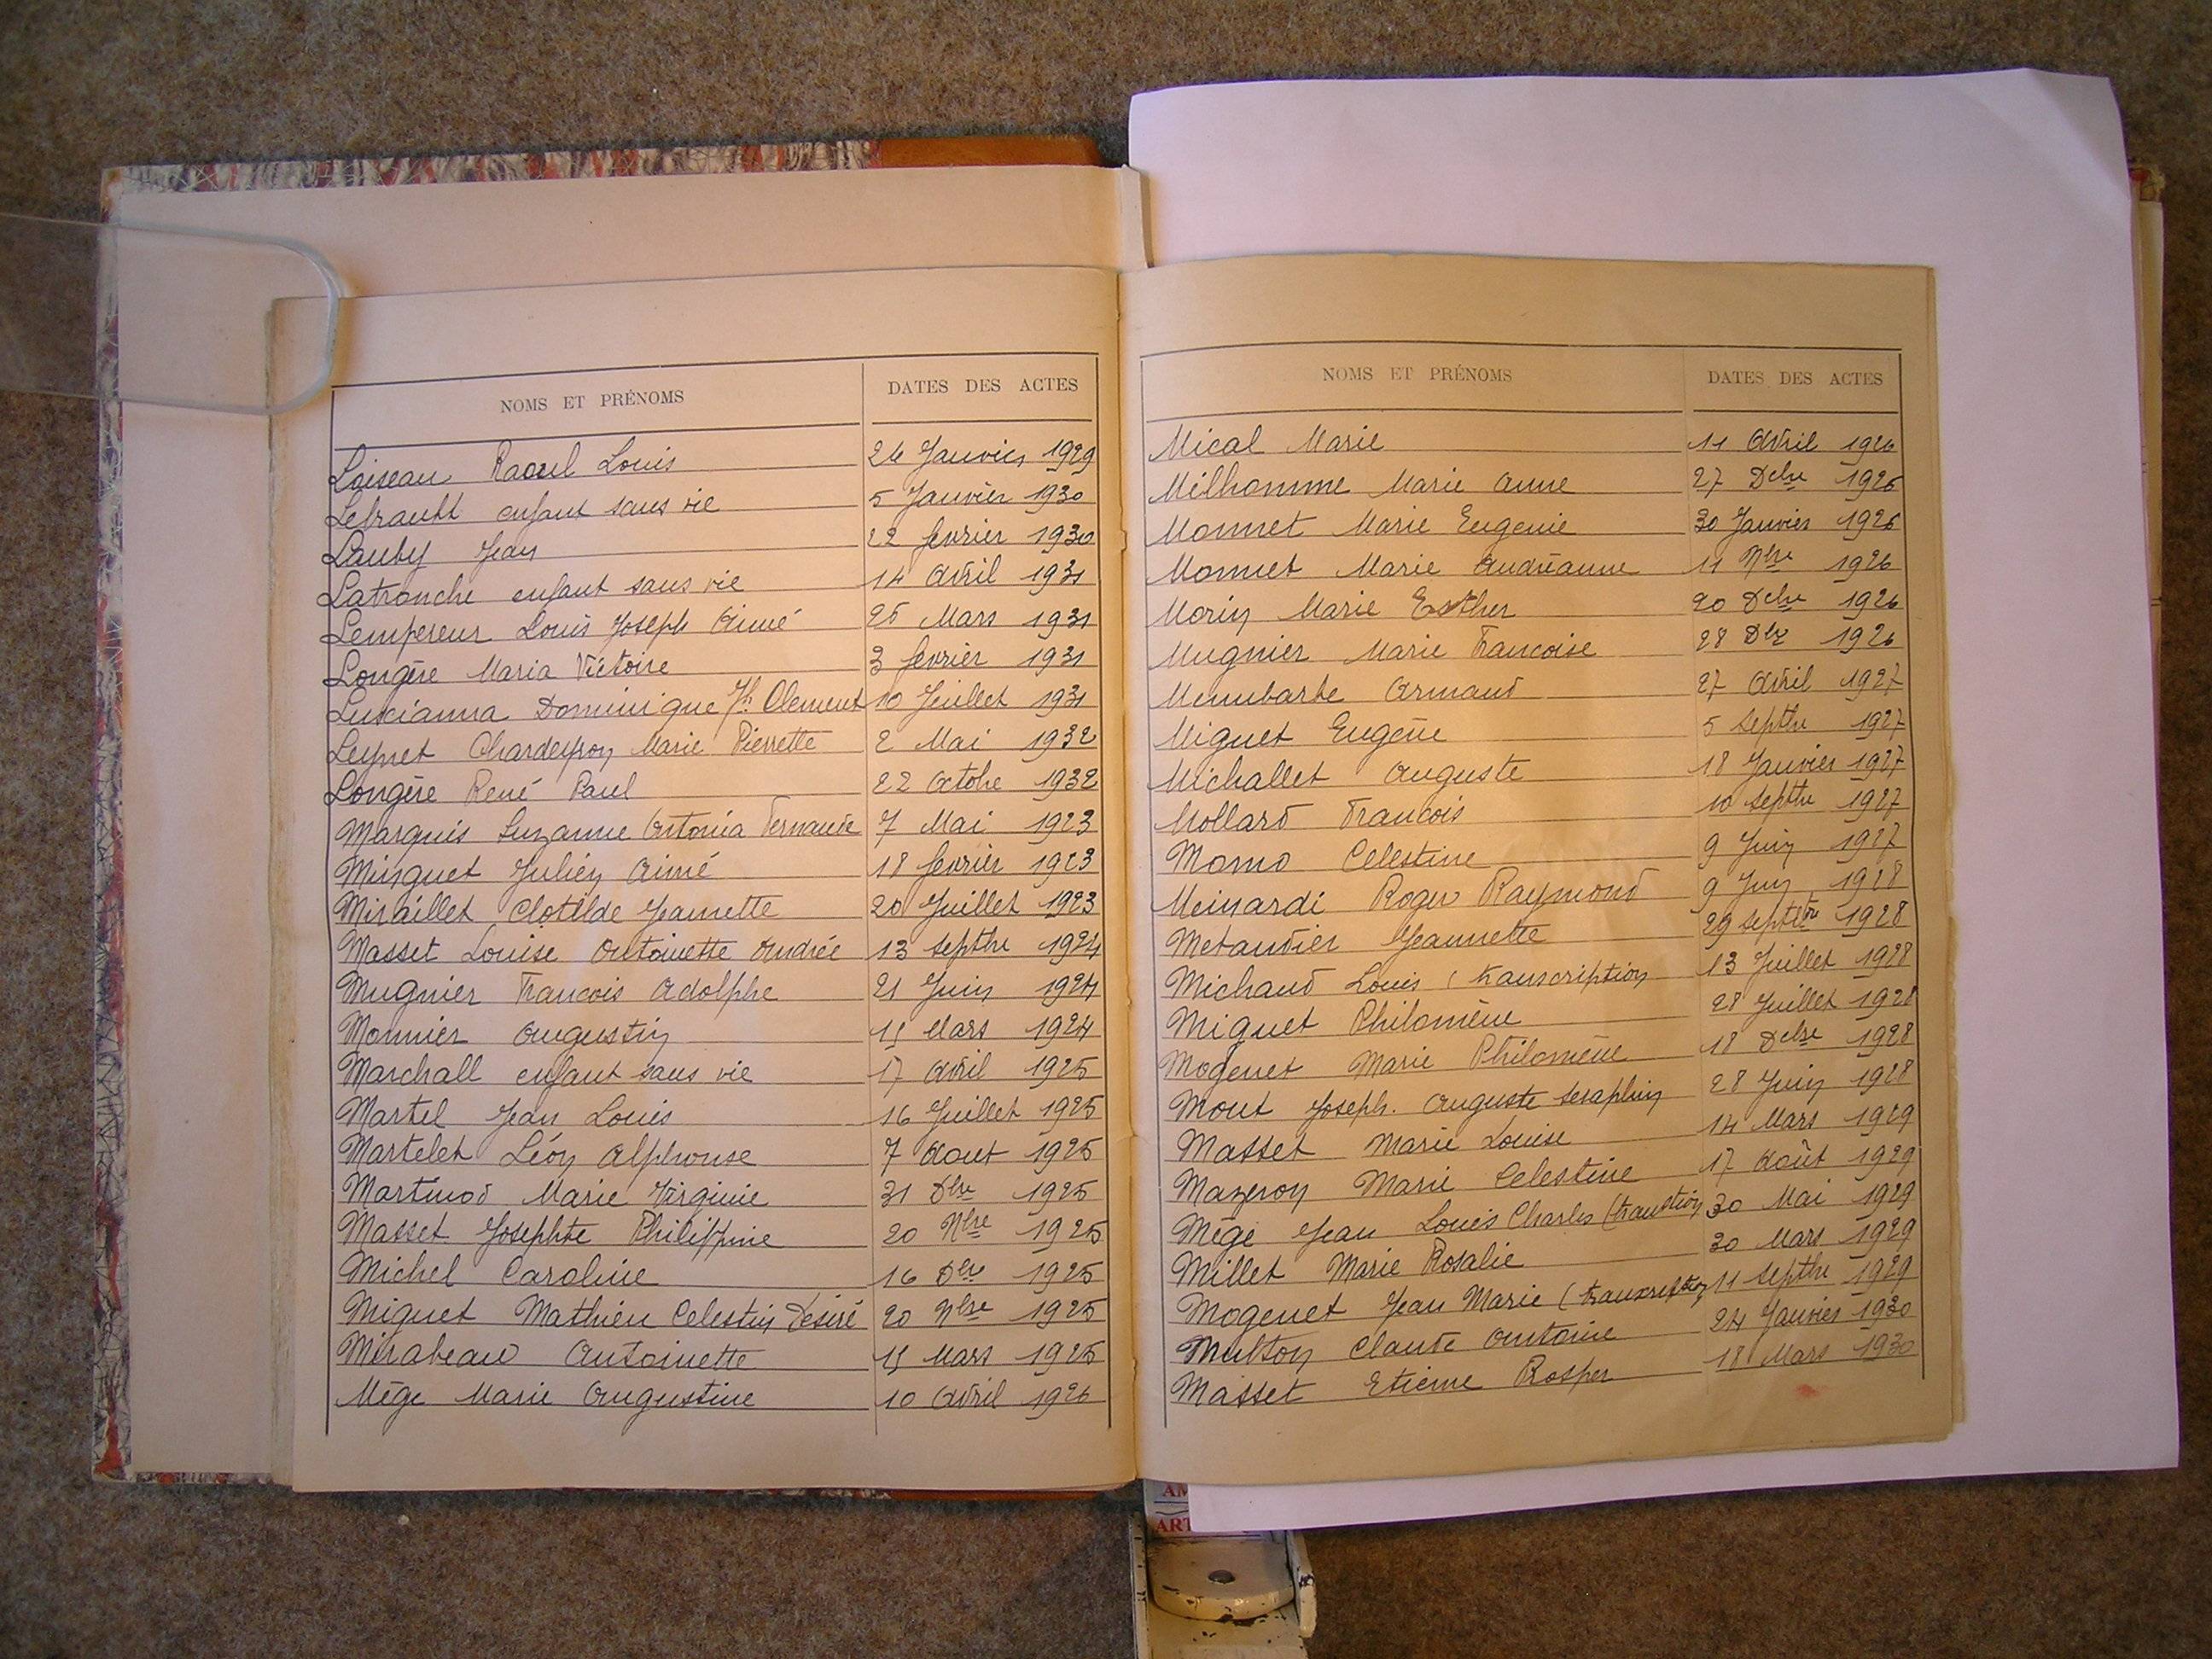 NOMS ET PRÉNOMS DATES DES ACTES
Loiseau Raoul Louis 26 Janvier 1929
enfant sans vie 5 Janvier 1930
Lauby Jean 22 fevrier 1930
Latronche enfant sans vie 14 Avril 1931
Lempereur Louis Joseph Aimé 25 Mars 1931
Longère Maria Victoire 3 fevrier 1931
Luscianna Dominique Jh Clement 10 Juillet 1931
Leynet Chardeyron Marie Pierrette 2 Mai 1932
Longère René Paul 22 Octobre 1932
Marquis Suzanne Antonia Fernande 7 Mai 1923
Minguet Julien Aimé 18 fevrier 1923
Miraillet Clotilde Jeannette 20 Juillet 1923
Masset Louise Antoinette Andrée 13 Septbre 1924
Mugnier Francois Adolphe 21 Juin 1924
Monnier Augustin Mars 1924
Marchall enfant sans vie 17 Avril 1925
Martel Jean Louis 16 Juillet 1925
Martelet Léon Alphonse 7 Aout 1925
Martinod Marie Virginie 31 Dbre 1925
Masset Josephte Philippine 20 Nbre 1925
Michel Caroline 16 Dbre 1925
Miguet Mathieu Celestin Désiré 20 Nbre 1925
Mirabeau Antoinette Mars 1925
Mège Marie Augustine 10 Avril 1926
NOMS ET PRÉNOMS DATES DES ACTES
Mical Marie 11 Avril 1926
Milhomme Marie Anne 27 Dcbre 1926
Monnet Marie Eugenie 30 Janvier 1926
Monnet Marie Andréanne 11 Nbre 1926
Morin Marie Esther 20 Dcbre 1926
Mugnier Marie Francoise 28 Dbr 1926
Menubarbe Armand 27 Avril 1927
Miguet Eugène 5 Septbre 1927
Michallet Auguste 18 Janvier 1927
Mollard Francois 10 Septbre 1927
Momo Celestine 9 Juin 1927
Meinardi Roger Raymond 9 Juin 1928
Metaudier Jeannette 29 Septbre 1928
Michaud Louis (transcription 13 Juillet 1928
Miguet Philomène 28 Juillet 1928
Mogenet Marie Philomène 18 Dcbre 1928
Mont Joseph. Auguste Seraphin 28 Juin 1928
Masset Marie Louise 14 Mars 1929
Mazeron Marie Celestine 17 Août 1929
Mége Jean Louis Charles (transction 30 Mai 1929
Millet Marie Rosalie 30 Mars 1929
Mogenet Jean Marie (transcription 11 Septbre 1929
Multon Claude Antoine 24 Janvier 1930
Masset Etienne Rosper 18 Mars 1930
AM
ART